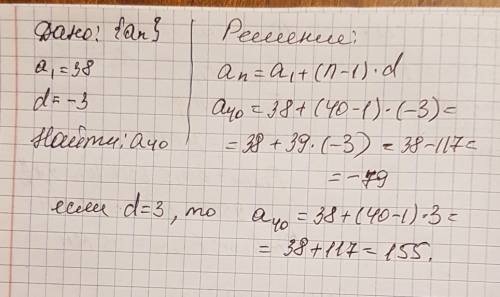 Дано: {an}
a₁=38
d=-3
Найти: a₄₀
Решение:
an=a₁+(n-1)·d
a₄₀=38+(40-1)·(-3)=
=38+39·(-3)=38-117=
=-79
если d=3, то a₄₀=38+(40-1)·3=
=38+117=155.